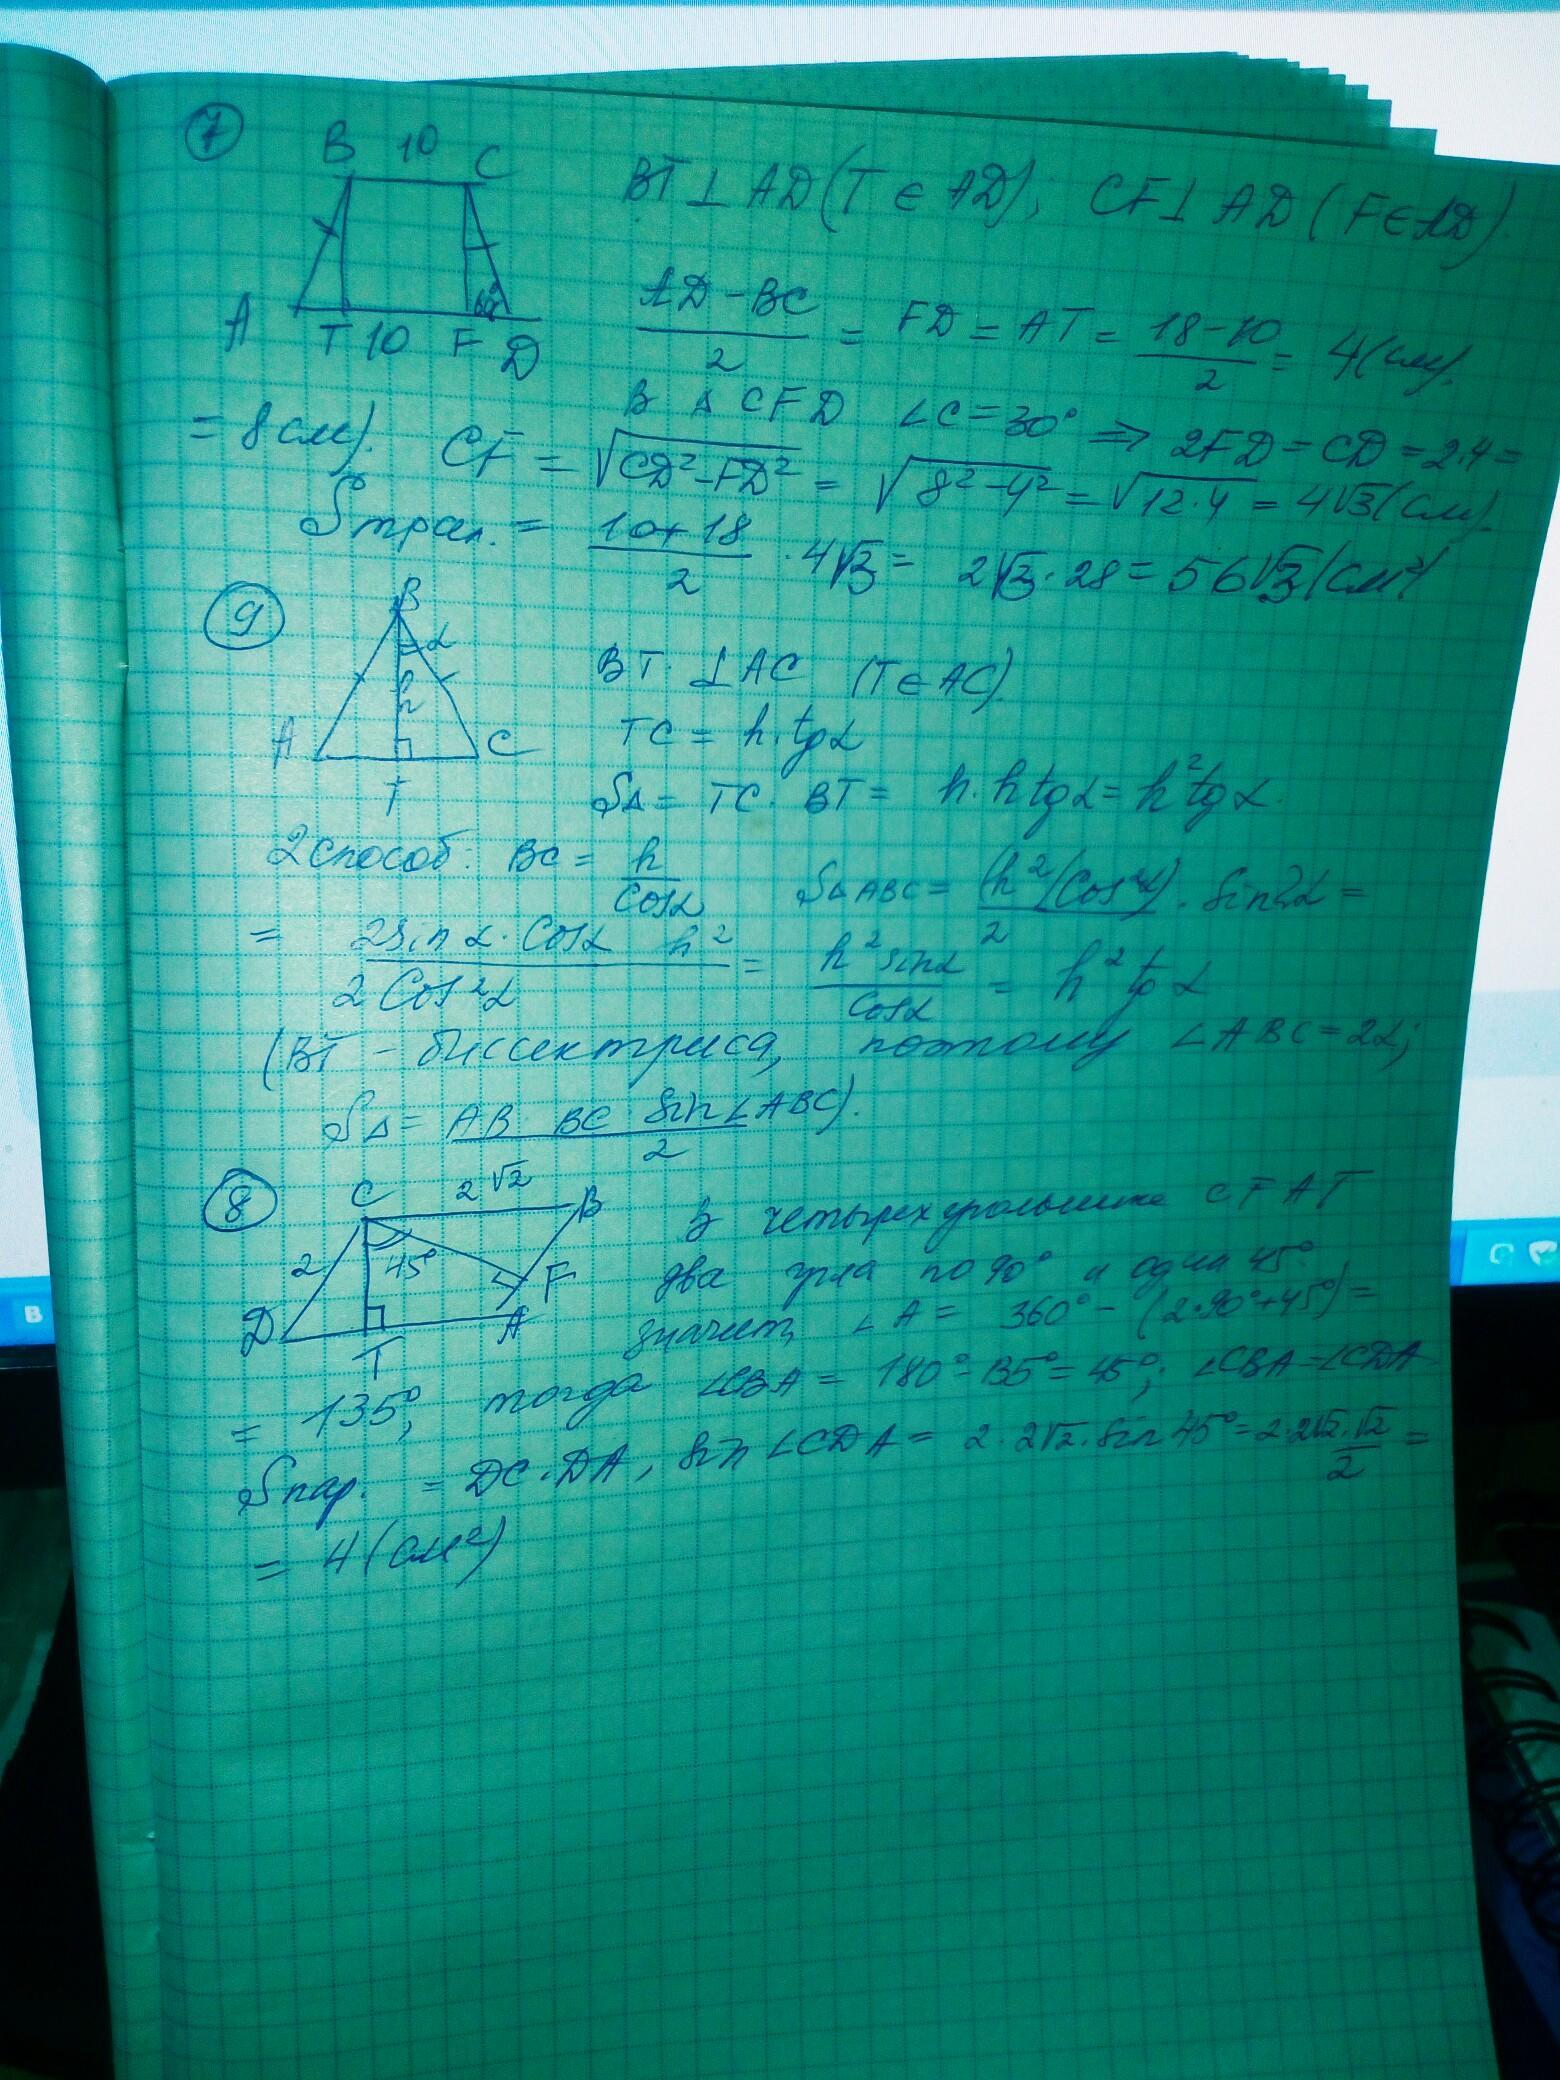 7
B 10 C
A T 10 F D
60°
BT ⊥ AD (T ∈ AD); CF ⊥ AD (F ∈ AD).
(AD - BC)/2 = FD = AT = (18-10)/2 = 4 (см).
В △ CFD ∠C = 30° ⇒ 2FD = CD = 2·4 =
= 8 см). CF = √(CD² - FD²) = √(8² - 4²) = √(12·4) = 4√3 (см).
Sтрап. = (10+18)/2 · 4√3 = 2√3 · 28 = 56√3 (см²)
9
B
α
h
A C
T
BT ⊥ AC (T ∈ AC).
TC = h·tgα
S△ = TC · BT = h·h tgα = h² tgα.
2 способ: BC = h/cosα S△ABC = (h²/(cos²α))/2 · sin2α =
= (2sinα·cosα h²)/(2cos²α) = (h² sinα)/cosα = h² tgα
(BT - биссектриса, поэтому ∠ABC = 2α;
S△ = (AB · BC sin∠ABC)/2).
8
C 2√2 B
2 45° F
D T A
В четырехугольнике CFAT
два угла по 90° и один 45°.
значит, ∠A = 360° - (2·90°+45°) =
= 135°, тогда ∠CBA = 180° - 135° = 45°; ∠CBA = ∠CDA
Sпар. = DC·DA, sin∠CDA = 2·2√2·sin45° = 2·2√2·√2/2 =
= 4 (см²)
В